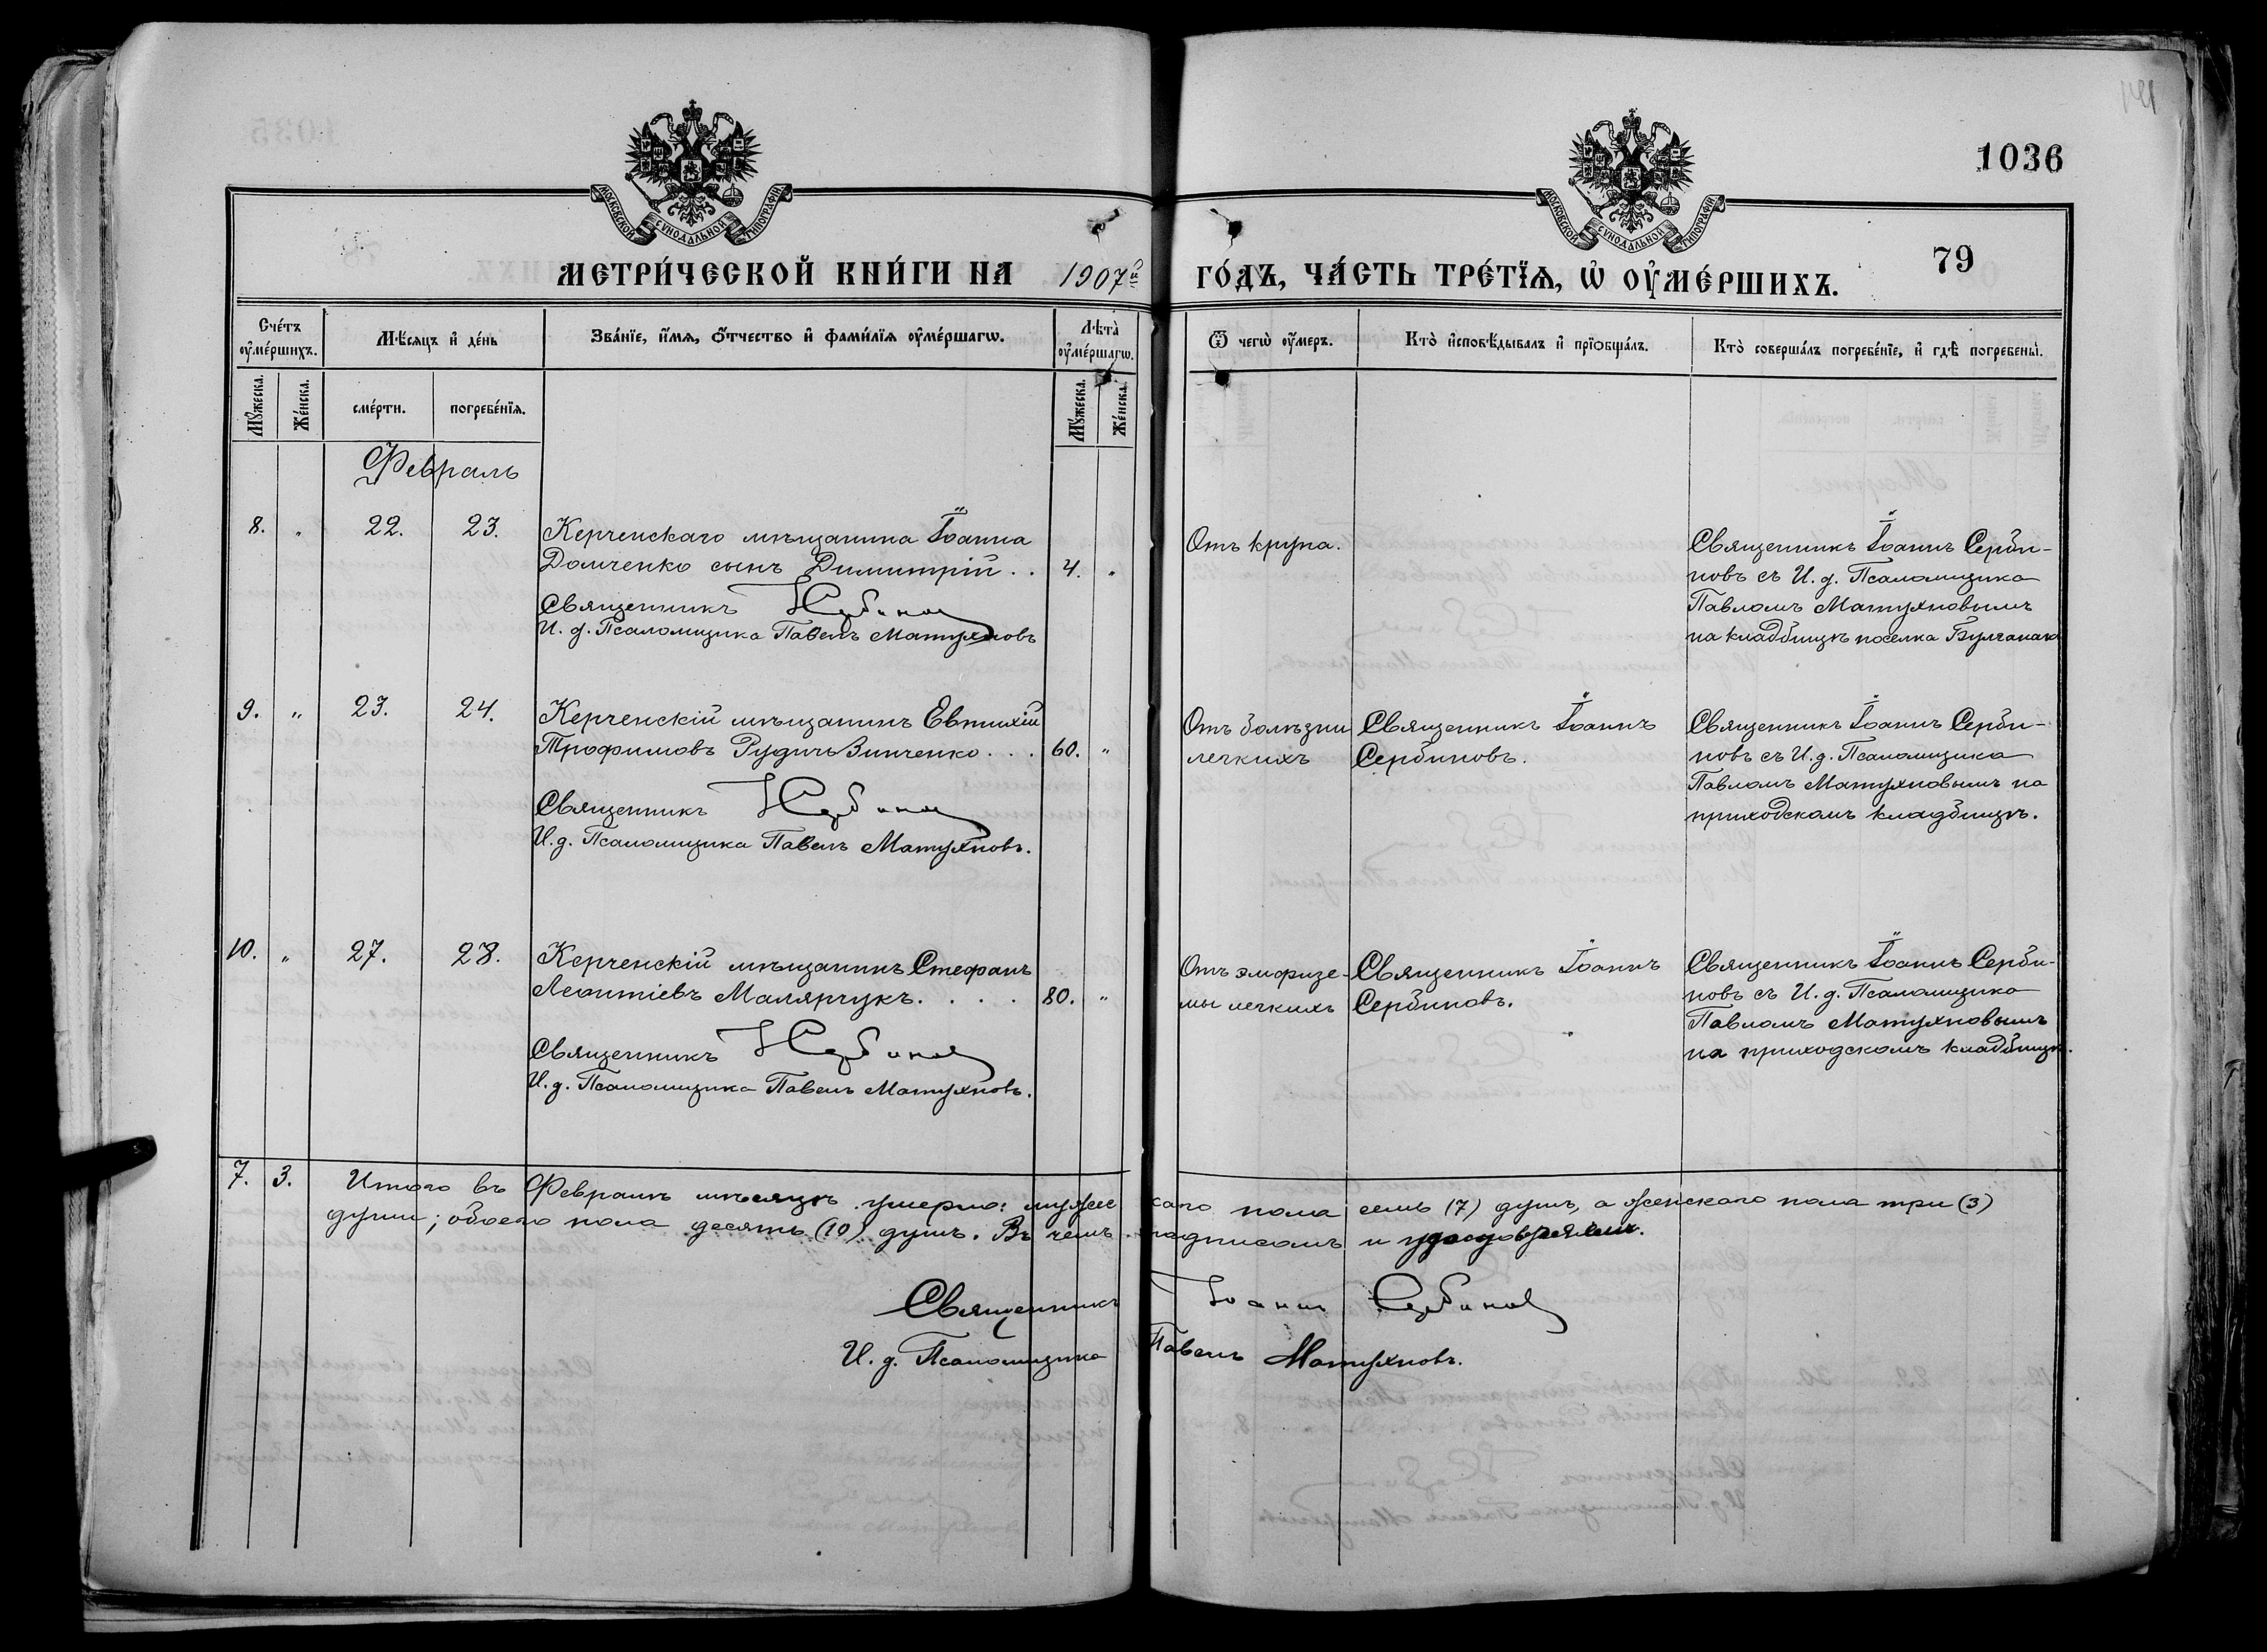 1036
79
МОСКОВСКОЙ СУНОДАЛЬНОЙ ТИПОГРАФІИ
МОСКОВСКОЙ СУНОДАЛЬНОЙ ТИПОГРАФІИ
МЕТРИ́ЧЕСКОЙ КНИ́ГИ НА 1907й ГО́ДЪ, ЧА́СТЬ ТРЕ́ТЇѦ, Ѡ҆ ОУ҆МЕ́РШИХЪ.
Сче́тъ оу҆ме́ршихъ.
Мѣ́сяцъ и҆ де́нь
Зва́нїе, и҆́мѧ, ѻ҆́тчество и҆ фами́лїѧ оу҆ме́ршагѡ.
Лѣта̀ оу҆ме́ршагѡ.
Ѿ чегѡ̀ оу҆́меръ.
Кто̀ и҆сповѣ́дывалъ и҆ прїѻбща́лъ.
Кто̀ соверша́лъ погребе́нїе, и҆ гдѣ̀ погребены̀.
Мꙋ́жеска.
Же́нска.
сме́рти.
погребе́нїѧ.
Мꙋ́жеска.
Же́нска.
Февраль
8. „ 22. 23. Керченскаго мѣщанина Іоанна
Домченко сынъ Димитрій . . 4. „
Священникъ ІСербиновъ
И. д. Псаломщика Павелъ Матухновъ
Отъ крупа.
Священникъ Іоаннъ Серби-
новъ съ И. д. Псаломщика
Павломъ Матухновымъ
на кладбищѣ поселка Булганака
9. „ 23. 24. Керченскій мѣщанинъ Евтихій
Трофимовъ Рудичъ Винченко . . . 60. „
Священникъ ІСербиновъ
И. д. Псаломщика Павелъ Матухновъ.
Отъ болѣзни
легкихъ
Священникъ Іоаннъ
Сербиновъ.
Священникъ Іоаннъ Серби-
новъ съ И. д. Псаломщика
Павломъ Матухновымъ на
приходскомъ кладбищѣ.
10. „ 27. 28. Керченскій мѣщанинъ Стефанъ
Леонтіевъ Малярчукъ. . . . 80. „
Священникъ ІСербиновъ
И. д. Псаломщика Павелъ Матухновъ.
Отъ эмфизе-
мы легкихъ
Священникъ Іоаннъ
Сербиновъ.
Священникъ Іоаннъ Серби-
новъ съ И. д. Псаломщика
Павломъ Матухновымъ
на приходскомъ кладбищѣ.
7. 3. Итого въ Февралѣ мѣсяцѣ умерло: мужескаго пола семь (7) душъ, а женскаго пола три (3)
души; обоего пола десять (10) душъ. Въ чемъ подписомъ и удостовѣряемъ.
Священникъ Іоаннъ Сербиновъ
И. д. Псаломщика Павелъ Матухновъ.